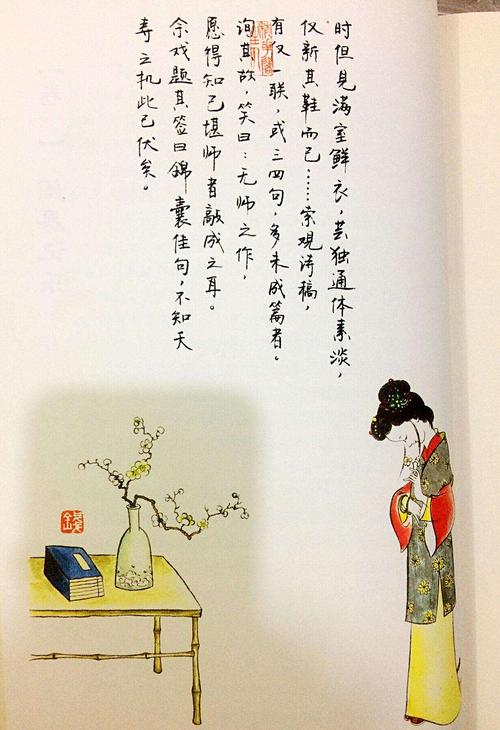 时但见满室鲜衣，芸独通体素淡，
仅新其鞋而已……索观诗稿，
有仅 联，或三四句，多未成篇者。
询其故，笑曰：无师之作，
愿得知己堪师者敲成之耳。
余戏题其签曰锦囊佳句，不知夭
寿之机此已伏矣。